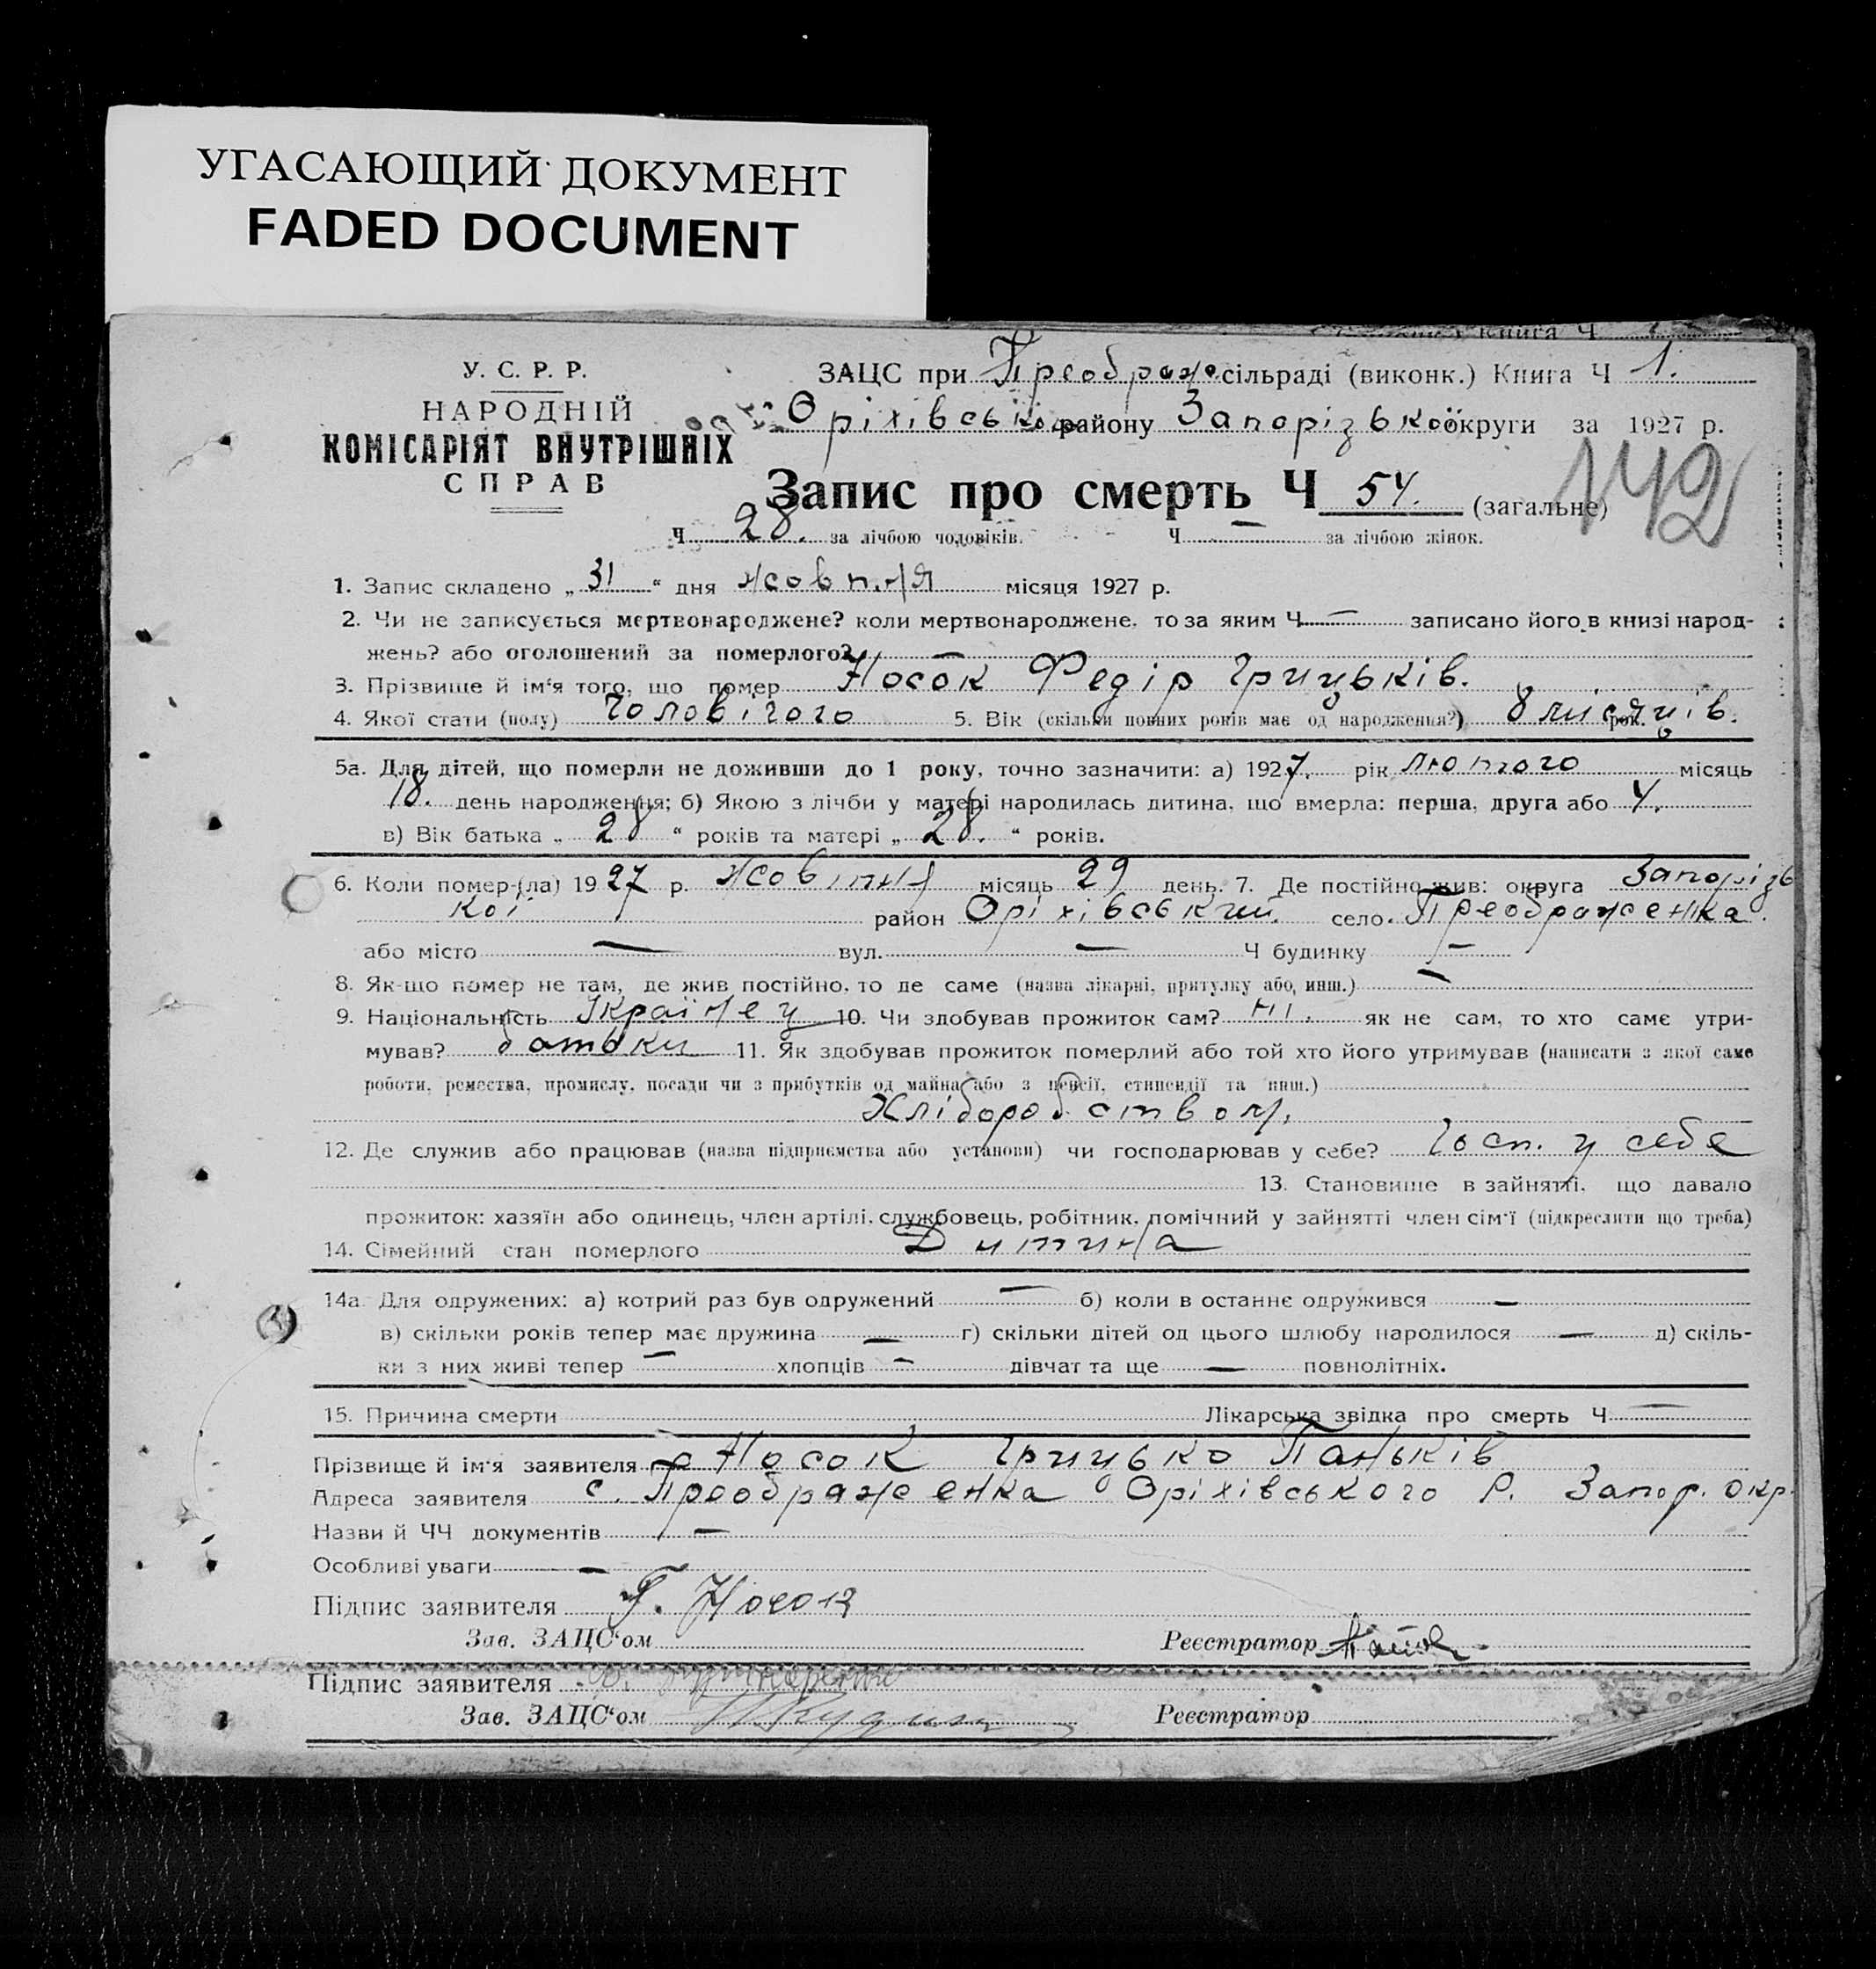 УГАСАЮЩИЙ ДОКУМЕНТ
FADED DOCUMENT
Книга Ч
У. С. Р. Р.
НАРОДНІЙ
КОМІСАРІЯТ ВНУТРІШНІХ
СПРАВ
ЗАЦС при Преображ. сільраді (виконк.) Книга Ч 1.
Оріхівського району Запорізької округи за 1927 р.
Запис про смерть Ч 54. (загальне) 142
Ч 28. за лічбою чоловіків. Ч — за лічбою жінок.
1. Запис складено „ 31 “ дня жовтня місяця 1927 р.
2. Чи не записується мертвонароджене? коли мертвонароджене, то за яким Ч — записано його в книзі народ-
жень? або оголошений за померлого? —
3. Прізвище й ім‘я того, що помер Носок Федір Грицьків.
4. Якої стати (полу) Чоловічого 5. Вік (скільки повних років має од народження?) 8 місяців. рок.
5а. Для дітей, що померли не доживши до 1 року, точно зазначити: а) 1927. рік лютого місяць
18. день народження; б) Якою з лічби у матері народилась дитина, що вмерла: перша, друга або 4.
в) Вік батька „ 28 “ років та матері „ 28. “ років.
6. Коли помер-(ла) 1927 р. жовтня місяць 29 день. 7. Де постійно жив: округа Запорізь
кої район Оріхівський село. Преображенка.
або місто — вул. — Ч будинку —
8. Як-що помер не там, де жив постійно, то де саме (назва лікарні, притулку або, инш.) —
9. Національність Українец 10. Чи здобував прожиток сам? Ні. як не сам, то хто саме утри-
мував? батьки 11. Як здобував прожиток померлий або той хто його утримував (написати з якої саме
роботи, ремества, промислу, посади чи з прибутків од майна або з пенсії, стипендії та инш.)
Хліборобством.
12. Де служив або працював (назва підприємства або установи) чи господарював у себе? Госп. у себе
13. Становище в зайнятті, що давало
прожиток: хазяїн або одинець, член артілі, службовець, робітник, помічний у зайнятті член сім‘ї (підкреслити що треба)
14. Сімейний стан померлого Дитина
14а. Для одружених: а) котрий раз був одружений — б) коли в останнє одружився —
в) скільки років тепер має дружина — г) скільки дітей од цього шлюбу народилося — д) скіль-
ки з них живі тепер — хлопців — дівчат та ще — повнолітніх.
15. Причина смерти Лікарська звідка про смерть Ч —
Прізвище й ім‘я заявителя Носок Грицько Паньків
Адреса заявителя с. Преображенка Оріхівського Р. Запор. окр.
Назви й ЧЧ документів —
Особливі уваги —
Підпис заявителя Г. Носок
Зав. ЗАЦС‘ом Реєстратор
Підпис заявителя
Зав. ЗАЦС‘ом Реєстратор